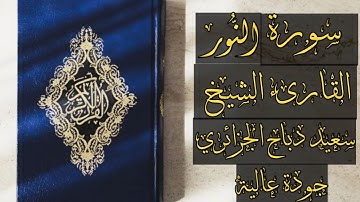 سورة النور
القارئ الشيخ
سعيد دباح الجزائري
جودة عالية
القرآن الكريم